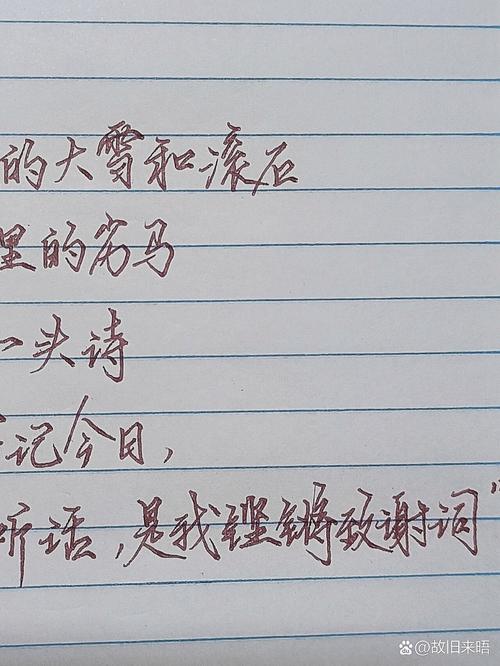 的大雪和滚石
里的劣马
一头诗
记今日，
听话，是我铿锵致谢词”
故旧来晤